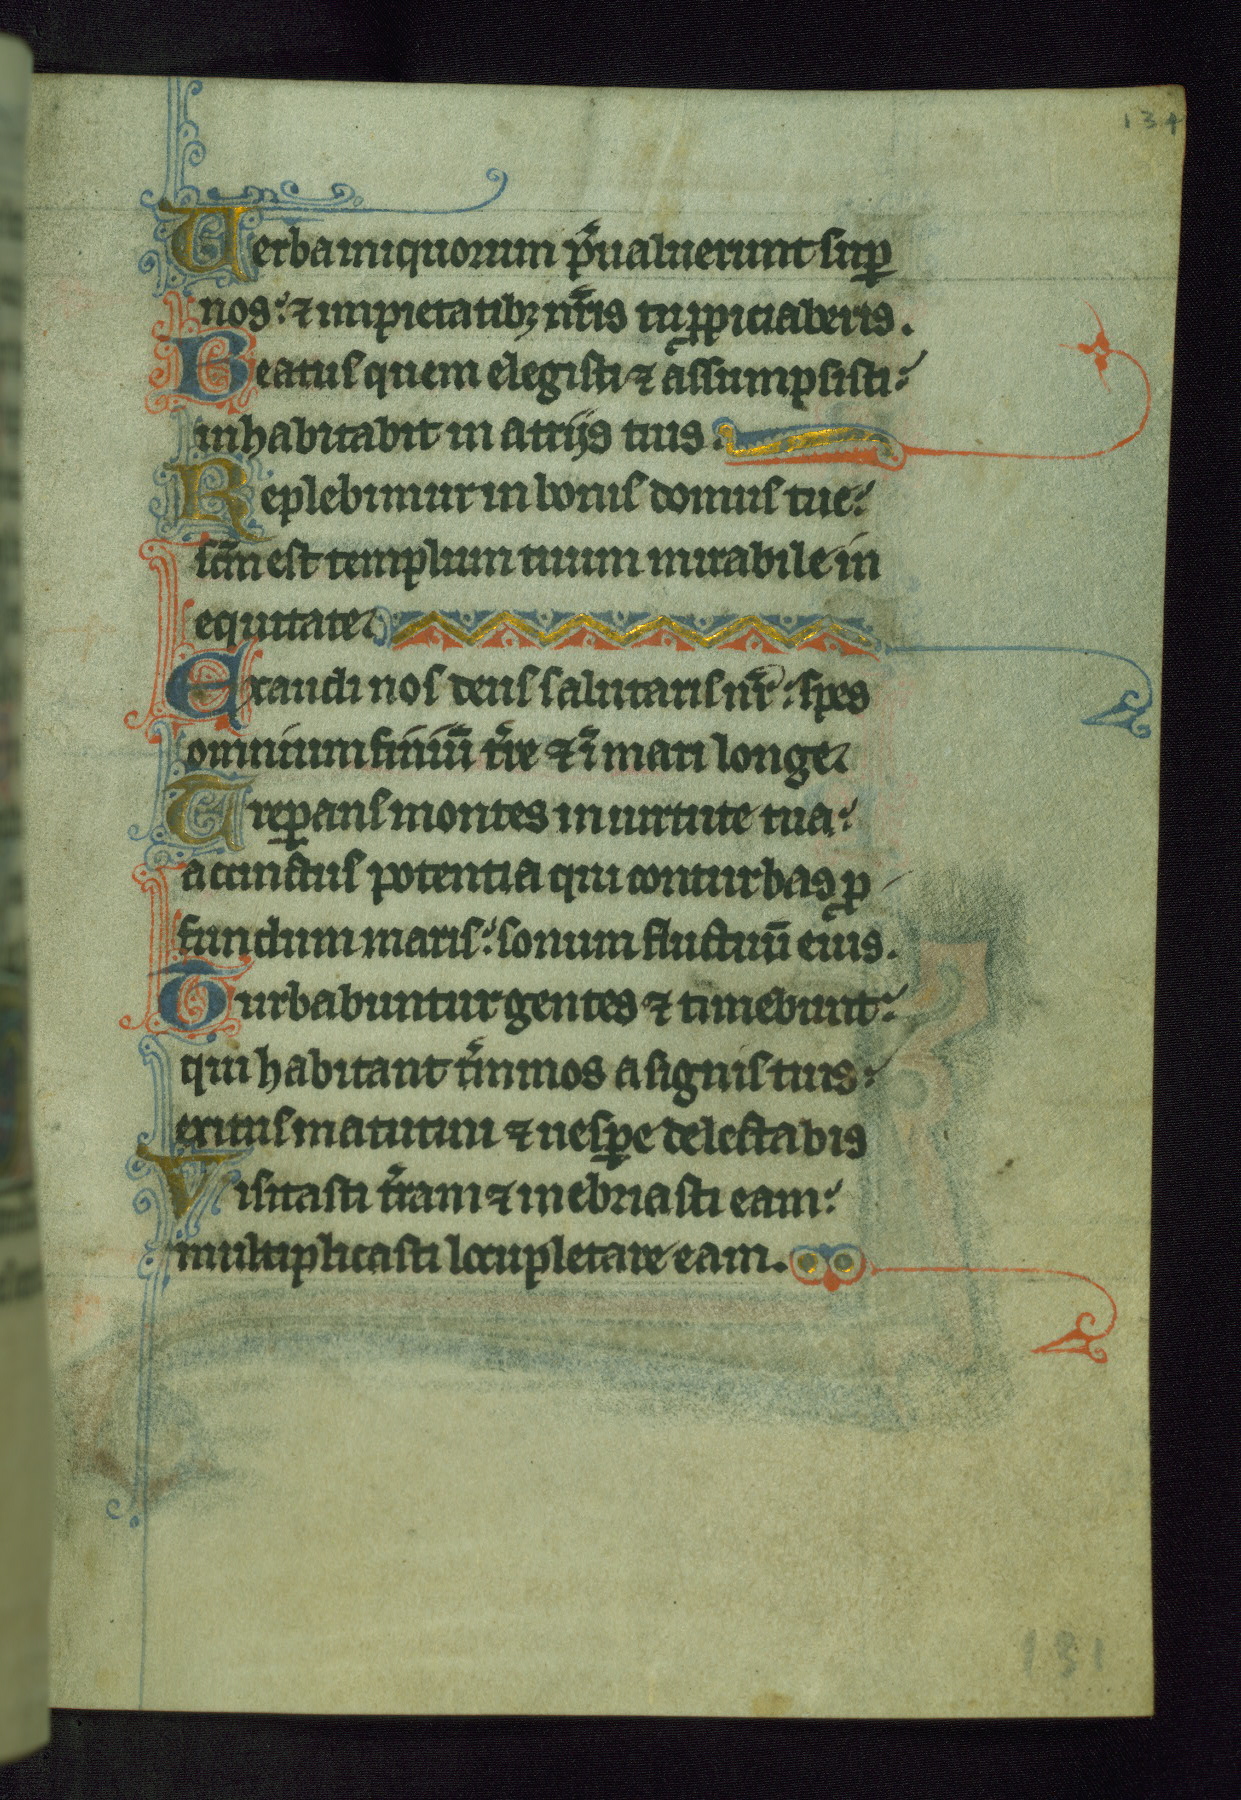 134
Uerba iniquorum p̃ualuerunt suꝑ
nos: ⁊ impietatibꝫ nr̃is tu ꝓpiciaberis.
Beatus quem elegisti ⁊ assumpsisti:
inhabitabit in atrijs tuis.
Replebimur in bonis domus tue:
sc̃m est templum tuum mirabile in
equitate.
Exaudi nos deus salutaris nr̃: spes
omnium finiũ tr̃e ⁊ ĩ mari longe.
Preꝑans montes in uirtute tua:
accinctus potentia qui conturbas ꝓ
fundum maris: sonum fluctuũ eius.
Turbabuntur gentes ⁊ timebunt:
qui habitant t̃minos a signis tuis:
exitus matutini ⁊ uesꝑe delectabis
Visitasti tr̃am ⁊ inebriasti eam:
multiplicasti locupletare eam.
131